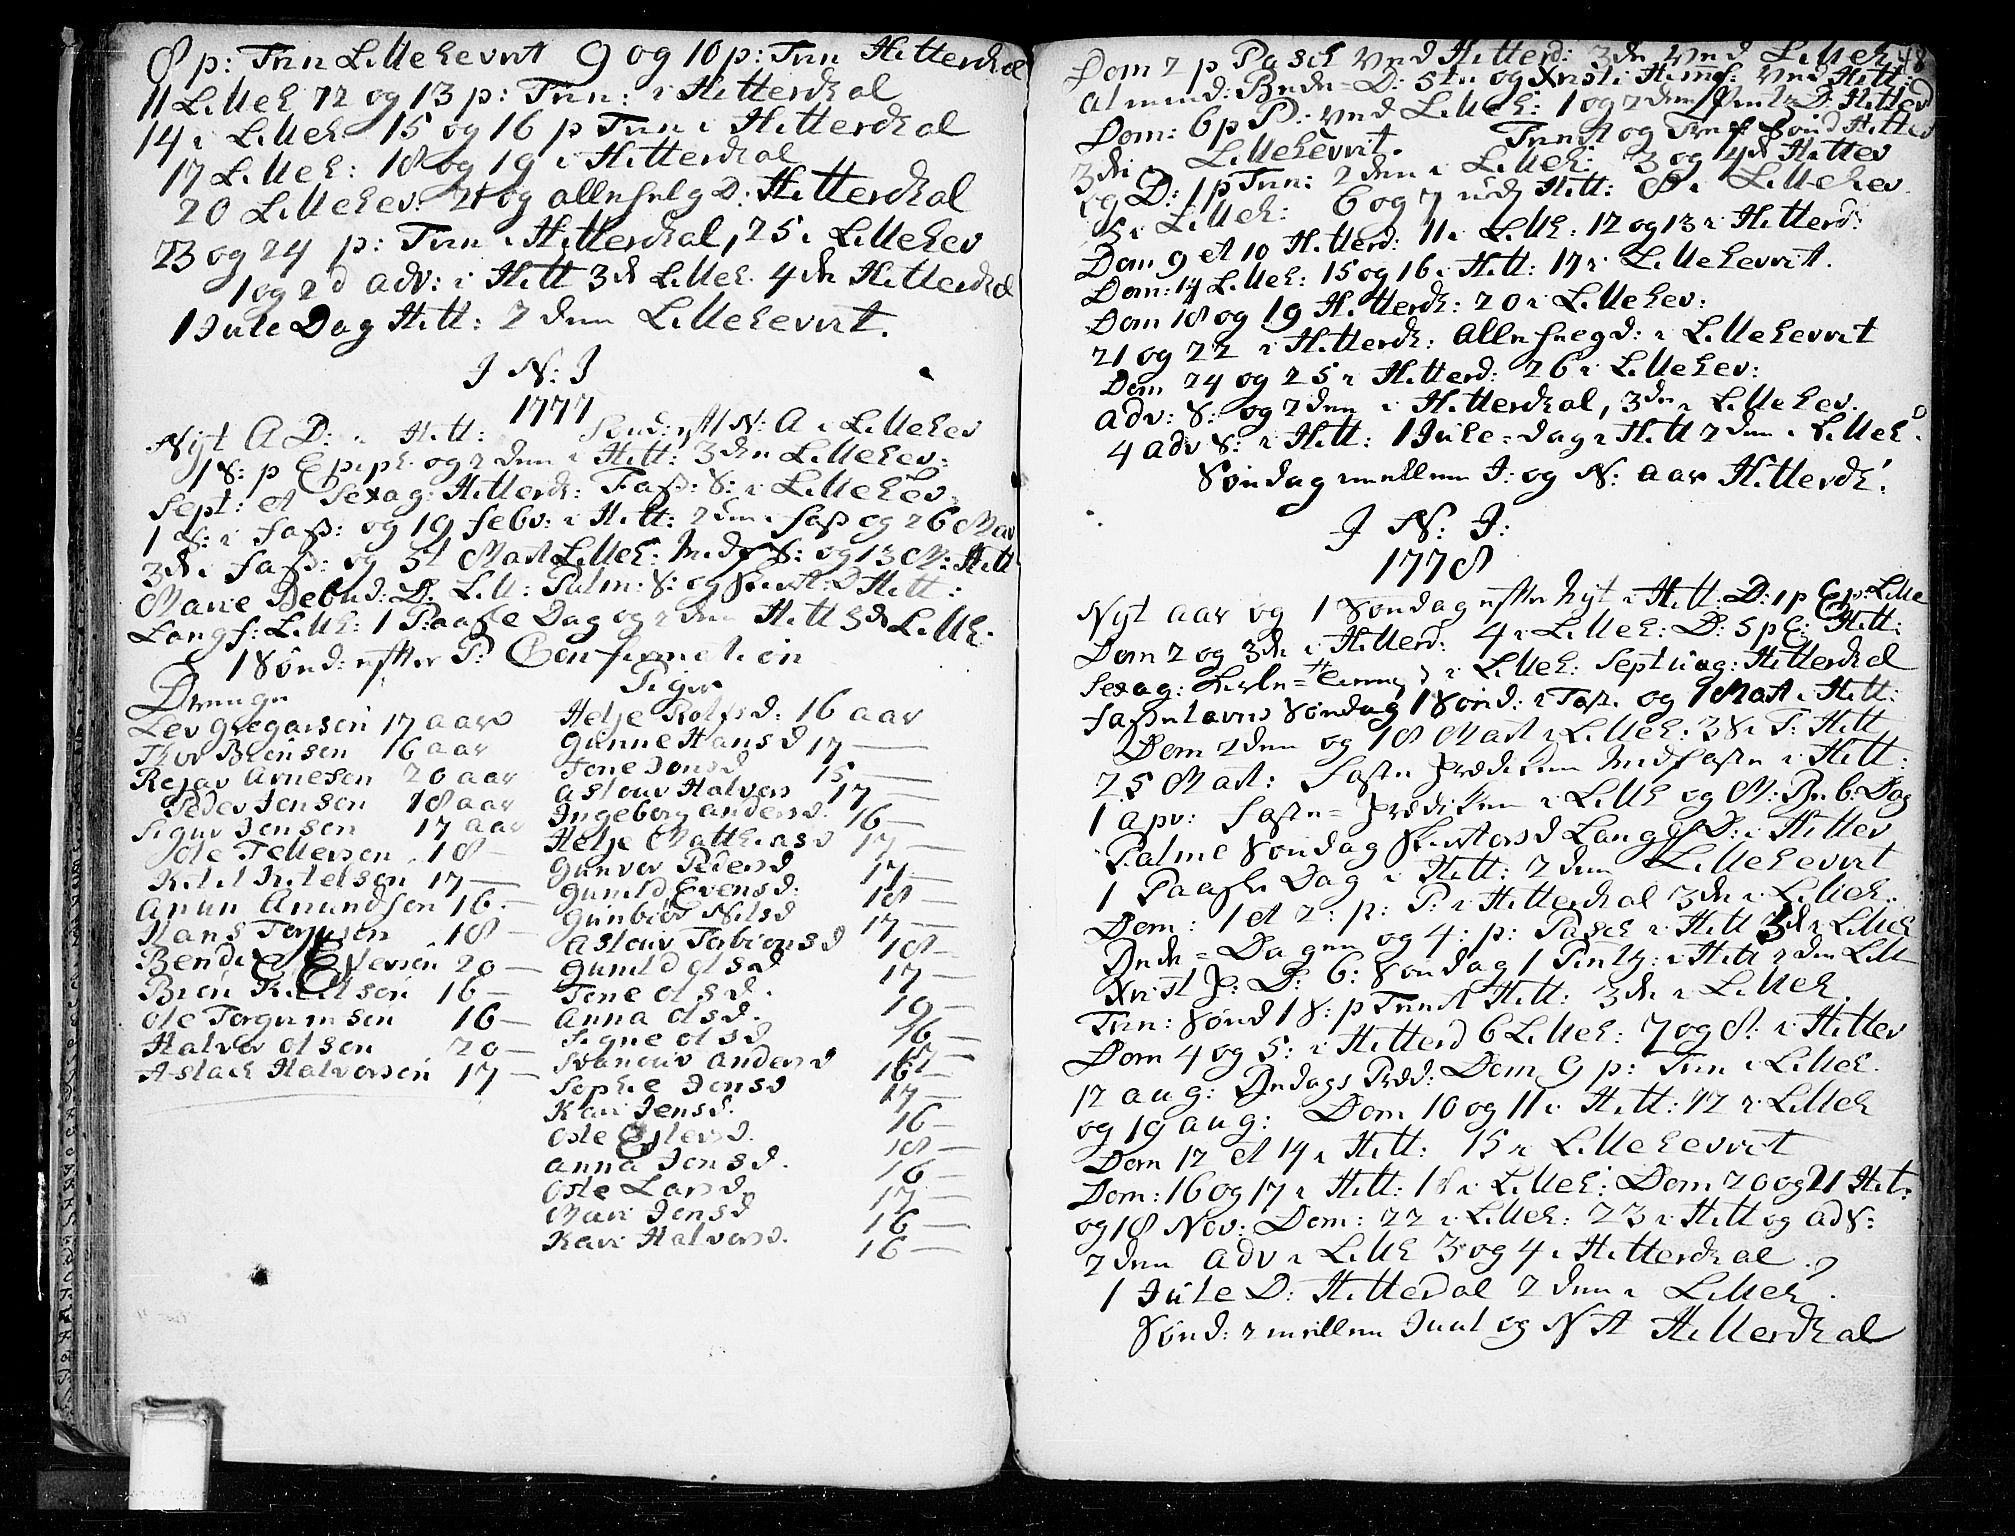 8 p: Trin Lillehervet 9 og 10 p: Trin Hitterdal
11 Lilleh 12 og 13 p: Trin: i Hitterdal
14 i Lilleh 15 og 16 p Trin i Hitterdal
17 Lilleh: 18 og 19 i Hitterdal
20 Lillehev: 21 og allehelg D: Hitterdal
23 og 24 p: Trin i Hitterdal, 25 i Lillehev
1 og 2d adv: i Hitt 3d Lilleh. 4de Hitterdal
1 Jule Dag Hitt: 2den Lillehevret.
J N: J
1777
Nyt A D: i Hitt: Sønd: N: A i Lillehev
1 S: p Epiph. og 2den i Hitt: 3den Lillehev:
Sept: et Sexag: Hitterd: Fast: S: i Lillehev
1 S: i Fast: og 19 febr: i Hitt: 2den i fast og 26 Mar
3de i fast: og 5t Mart Lilleh: Midf S: og 13 M: Hitt
Marie Bebud: D: Lill: Palm: S: og Skiert: D Hitt:
Langf: Lilleh: 1 Paaske Dag og 2den Hitt 3d Lilleh:
1 Sønd: efter P: Confirmation
Drenge
Lev Gregarsen 17 aar
Thor Biønsen 16 aar
Rejar Arnesen 20 aar
Peder Jensen 18 aar
Sigur Jensen 17 aar
Ole Tellersen 18 —
Ketel Ketelsen 17 —
Amun Amundsen 16 —
Hans 18 —
Bendix 20 —
Biøn Ketelsen 16 —
Ole Torgrimsen 16 —
Halvor Olsen 20 —
Aslach Halvorsen 17 —
Piger
Helje Rolfsd: 16 aar
Gunne Hansd 17 —
Tone Jonsd 15 —
Aslouv Halvors 17 —
Ingeborg Andersd. 16 —
Helje Matthiasd 17 —
Gunvor Pedersd 17 —
Gunild Evensd: 18 —
Gunbiør Nilsd 17 —
Aslouv Torbionsd 18 —
Gunild Olsd 17 —
Tone Olsd. 19 —
Anna Olsd. 16 —
Signe Olsd 17 —
Svanouv Andersd 16 —
Sophie Jensd 17 —
Kari Jensd. 16 —
Osle 18 —
Anna Jonsd. 16 —
Osle Larsd. 17 —
Mari Jensd 16 —
Kari Halvorsd. 16 —
Dom 2 p Pasch ved Hitterd: 3de ved Lilleh 48
Almind: Bede=D: 5te og Xristi Himf: ved Hitt:
Dom: 6 p P: ved Lilleh: 1 og 2den Pintz D: Hitterd
3de i Lillehevret. Trinit Hitter
og D: 1 p Trin: 2den i Lilleh: 3 og 4d Hitter
5 i Lilleh: 6 og 7 ud Hitt: 8 i Lillehev.
Dom 9 et 10 Hitterd: 11 i Lilleh: 12 og 13 i Hitterd:
Dom: 14 Lilleh: 15 og 16 i Hitt: 17 i Lillehevret.
Dom 18 og 19 Hitterd: 20 i Lillehev:
21 og 22 i Hitterd: Allehelgd: i Lillehevret
Dom 24 og 25 i Hitterd: 26 i Lillehev:
Adv: S: og 2den i Hitterdal, 3de i Lillehev.
4 Adv S: i Hitt: 1 Jule=dag i Hitt 2den i Lilleh.
Søndag mellem J: og N: aar Hitterd:
J N: J:
1778
Nyt aar og 1 Søndag efter Nyt i Hitt: D: 1 p Ep: Lille
Dom 2 og 3de i Hitterd: 4 i Lilleh: D: 5 p E: Hitt:
Sexag: i Lilleh: Septuag: Hitterdal
Fastelavns Søndag 1 Sønd: i Fast. og 1 Mart i Hitt:
Dom 2den og 18 Mart i Lilleh: 3 S i F: Hitt
25 Mart: Faste Prædiken Midfaste i Hitt:
1 apr: Faste=Prædiken i Lilleh og M: Beb: Dag
Palme Søndag Skiertorsd Langf D: i Hitter
1 Paaske Dag i Hitt: 2den Lillehevret
Dom: 1 et 2: p: P: i Hitterdal 3de i Lilleh.
Bede=Dagen og 4: p: Pasch i Hitt 3d i Lilleh
Xristi H: D: 6: Søndag 1 Pintz: i Hitt 2den Lill
Trin: Sønd 1 S: p Trinit Hitt: 3de i Lilleh.
Dom 4 og 5: i Hitterd 6 Lilleh: 7 og 8: i Hitter
12 aug: Præd: Dom 9 p: Trin i Lilleh.
og 19 aug: Dom 10 og 11 i Hitt: 12 i Lilleh
Dom 12 et 14 i Hitt: 15 i Lillehevret
Dom: 16 og 17 i Hitt: 18 i Lilleh: Dom 20 og 21 Hitt:
og 18 Nov: Dom: 22 i Lilleh: 23 i Hitt og Adv:
2den Adv i Lilleh 3 og 4 i Hitterdal.
1 Jule D: Hitterdal 2den i Lilleh.
Sønd: imellem Juul og N A Hitterdal